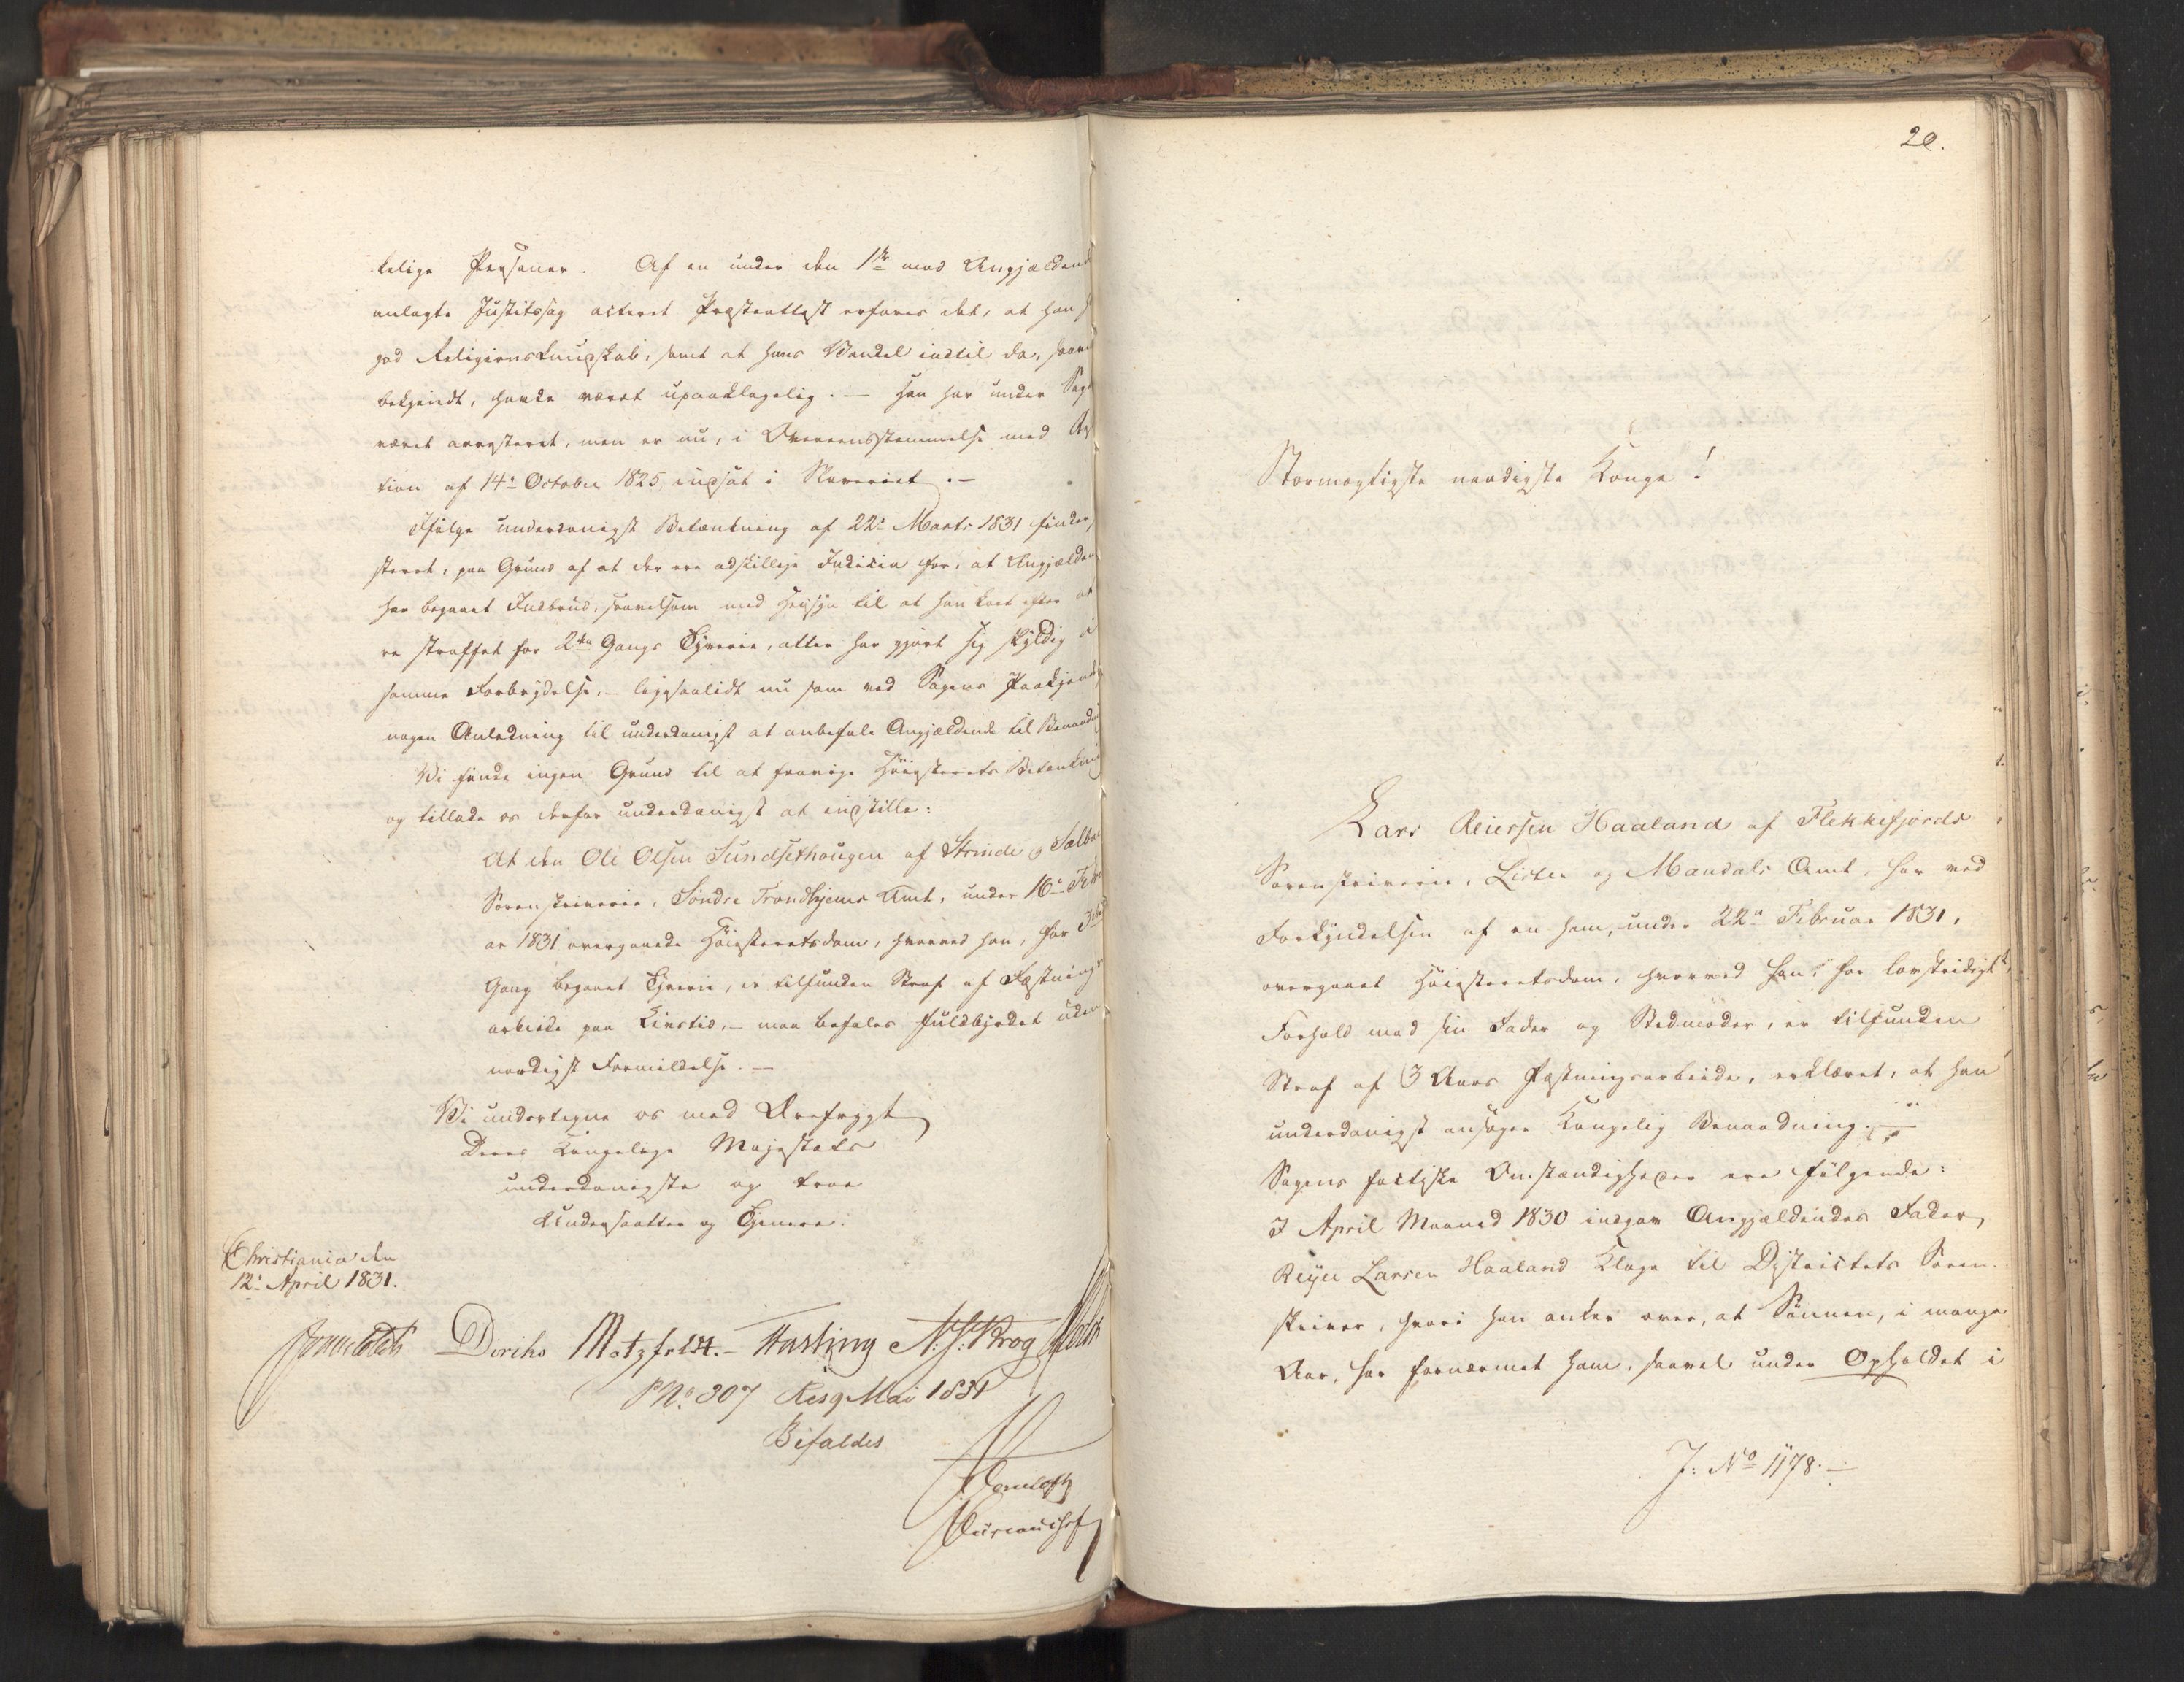 kelige Personer. Af en under den 1ste mod Angjældend
anlagte Justitssag acteret Præsteattest erfares det, at han h
god Religionskundskab, samt at hans Vandel indtil da, saavi
bekjendt, havde været upaaklagelig. — Han har under Sage
været arresteret, men er nu, i Overeensstemmelse med
tion af 14de October 1825, indsat i Slaveriet. —
Ifølge underdanigst Betænkning af 22de Marts 1831 finder
steret, paa Grund af at der ere adskillige Indicia for, at Angjælden
har begaaet Indbrud, saavelsom med Hensyn til at han kort efter at
re straffet for 2den Gangs Tyverie, atter har gjort sig skyldig i
samme Forbrydelse, — ligesaalidt nu som ved Sagens Paakjende
nogen Anledning til underdanigst at anbefale Angjældende til Benaadn
Vi finde ingen Grund til at fravige Høiesterets Betænkni
og tillade os derfor underdanigst at indstille:
At den Ole Olsen Sundsethaugen af Strinde og Sælbo
Sorenskriverie, Søndre Trondhjems Amt, under 16de Febr
ar 1831 overgaaede Høiesteretsdom, hvorved han, for 3die
Gang begaaet Tyverie, er tilfunden Straf af Fæstnings
arbeide paa Livstid, — maa befales fuldbyrdet uden
naadigst Formildelse. —
Vi undertegne os med Ærefrygt
Deres Kongelige Majestæts
underdanigste og troe
Undersaatter og Tjenere.
Christiania den
12te April 1831.
Diriks Motzfeldt. — Hasting N. J. Krog
P No. 307 Res 9 Mai 1831
Bifaldes
Bureauchef
20.
Stormægtigste naadigste Konge!
Lars Reiersen Haaland af Flekkefjords
Sorenskriverie, Lister og Mandals Amt, har ved
Forkyndelsen af en ham, under 22de Februar 1831,
overgaaet Høiesteretsdom, hvorved han, for lovstridigt
Forhold mod sin Fader og Stedmoder, er tilfunden
Straf af 3 Aars Fæstningsarbeide, erklæret, at han
underdanigst ansøger Kongelig Benaadning. —
Sagens factiske Omstændigheder ere følgende:
I April Maaned 1830 indgav Angjældendes Fader,
Reyer Larsen Haaland Klage til Districtets Soren-
skriver, hvori han anker over, at Sønnen, i mange
Aar, har fornærmet ham, saavel under Opholdet i
J: No 1178. —